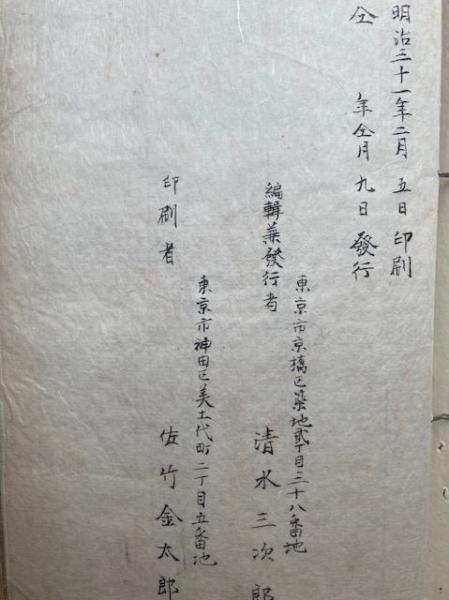 明治三十一年二月五日印刷
仝年仝月九日發行
東京市京橋区築地貳丁目三十八番地
編輯兼發行者 清水三次郎
東京市神田区美土代町二丁目五番地
印刷者 佐竹金太郎